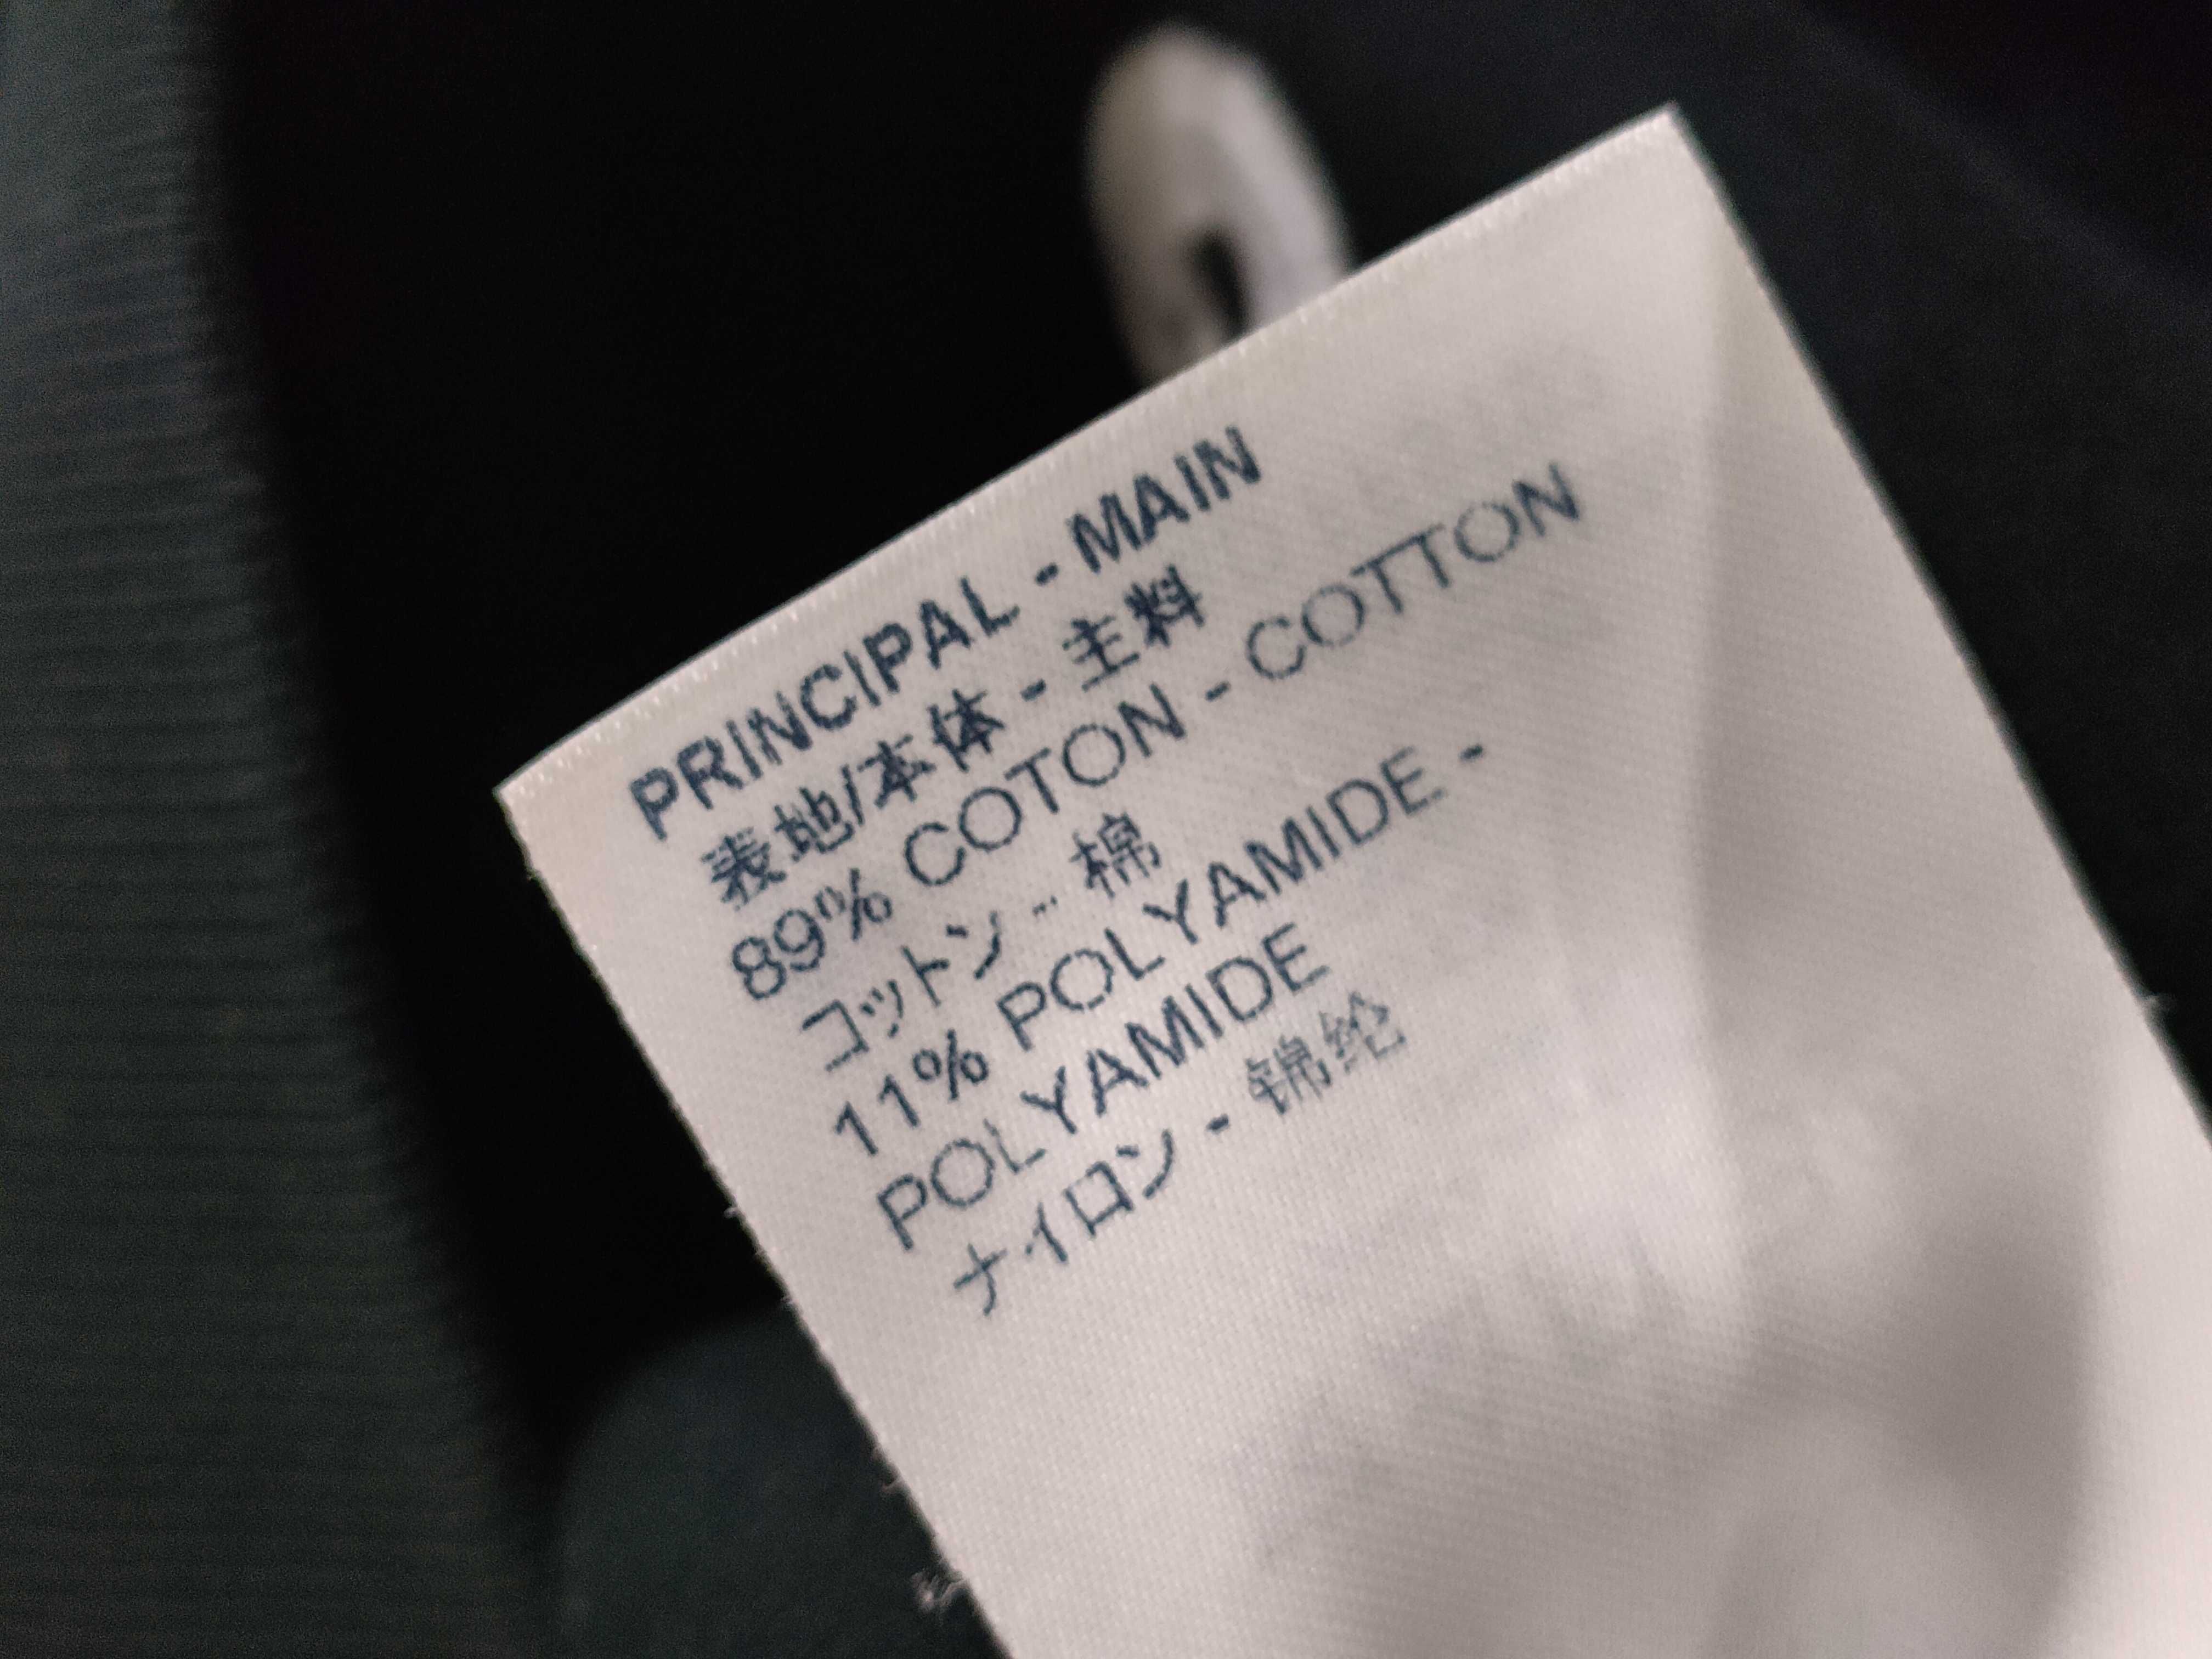 PRINCIPAL - MAIN
表地/本体 - 主料
89% COTON - COTTON
コットン - 棉
11% POLYAMIDE -
POLYAMIDE
ナイロン - 锦纶